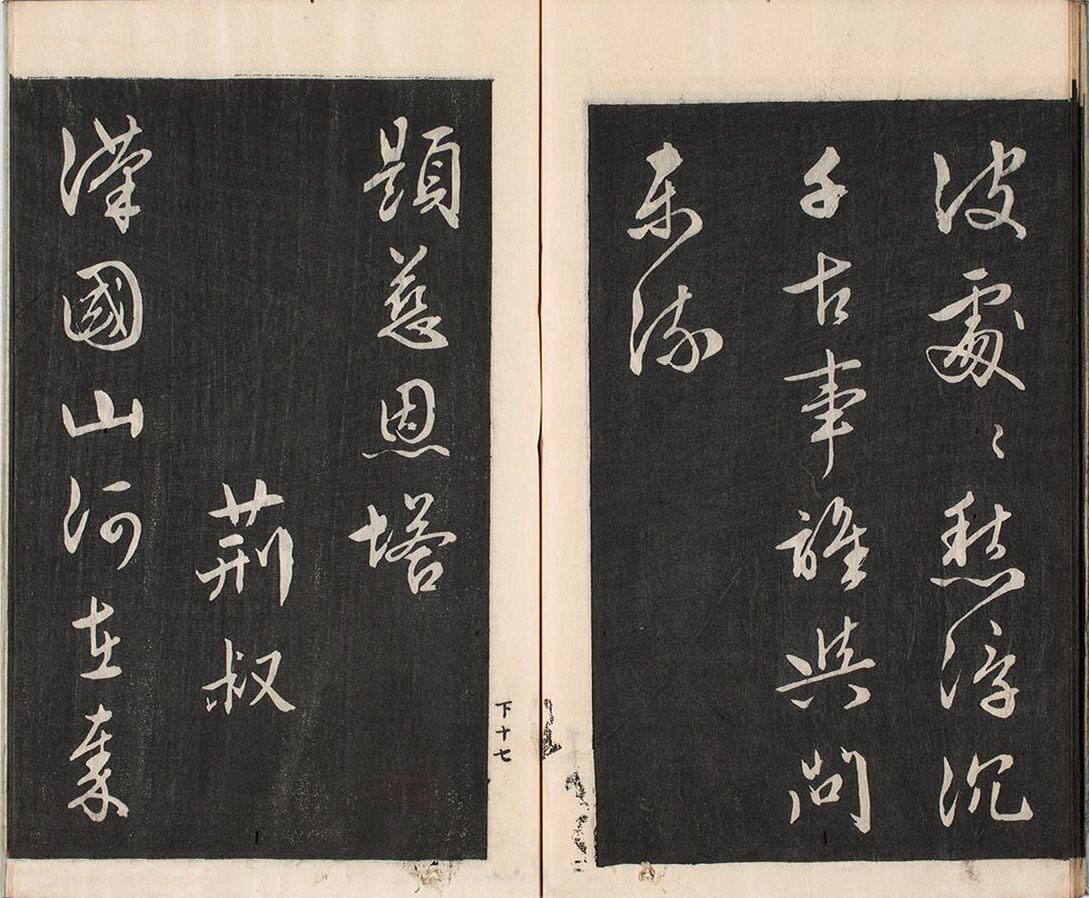 波處〻愁浮沉
千古事誰與問
東流
下十七
題慈恩塔
荊叔
漢國山河在秦